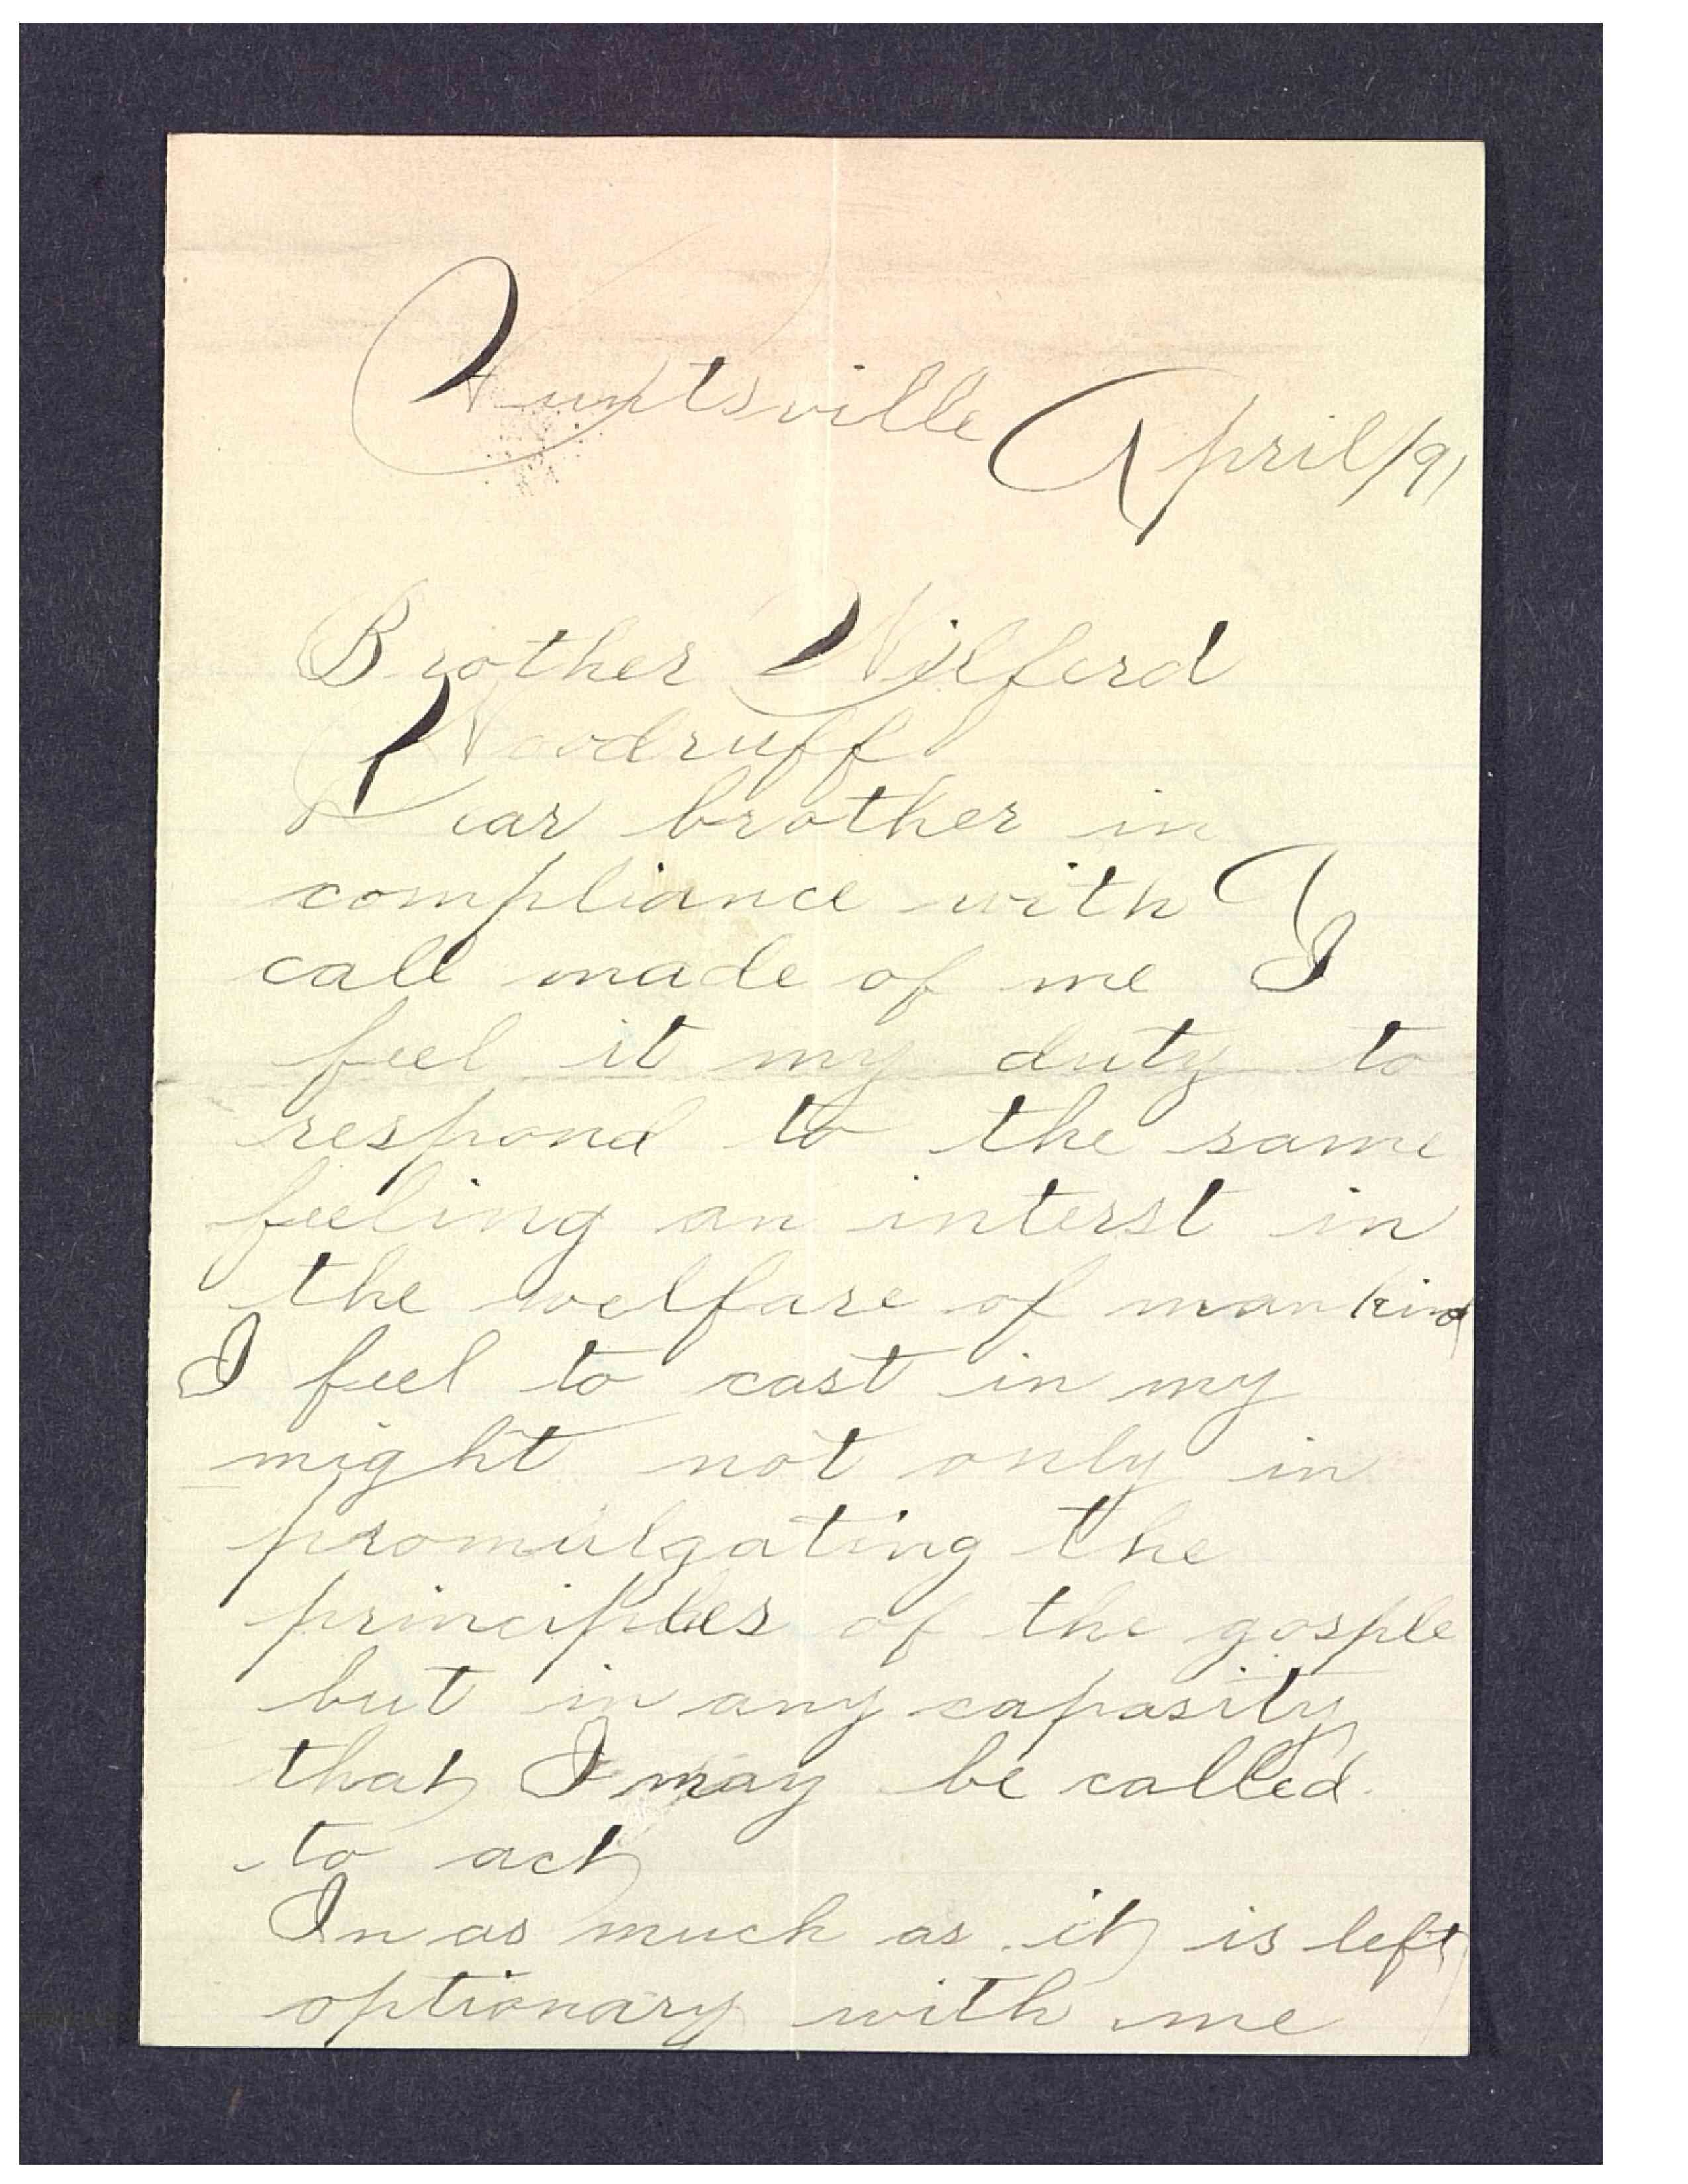 Huntsville April/91
Brother Wilford
Woodruff
Dear brother in
compliance with
call made of me I
feel it my duty to
respond to the same
feeling an interst in
the welfare of mankind
I feel to cast in my
might not only in
promulgating the
principles of the gosple
but in any capasity
that I may be called
to act
In as much as it is left
optionary with me